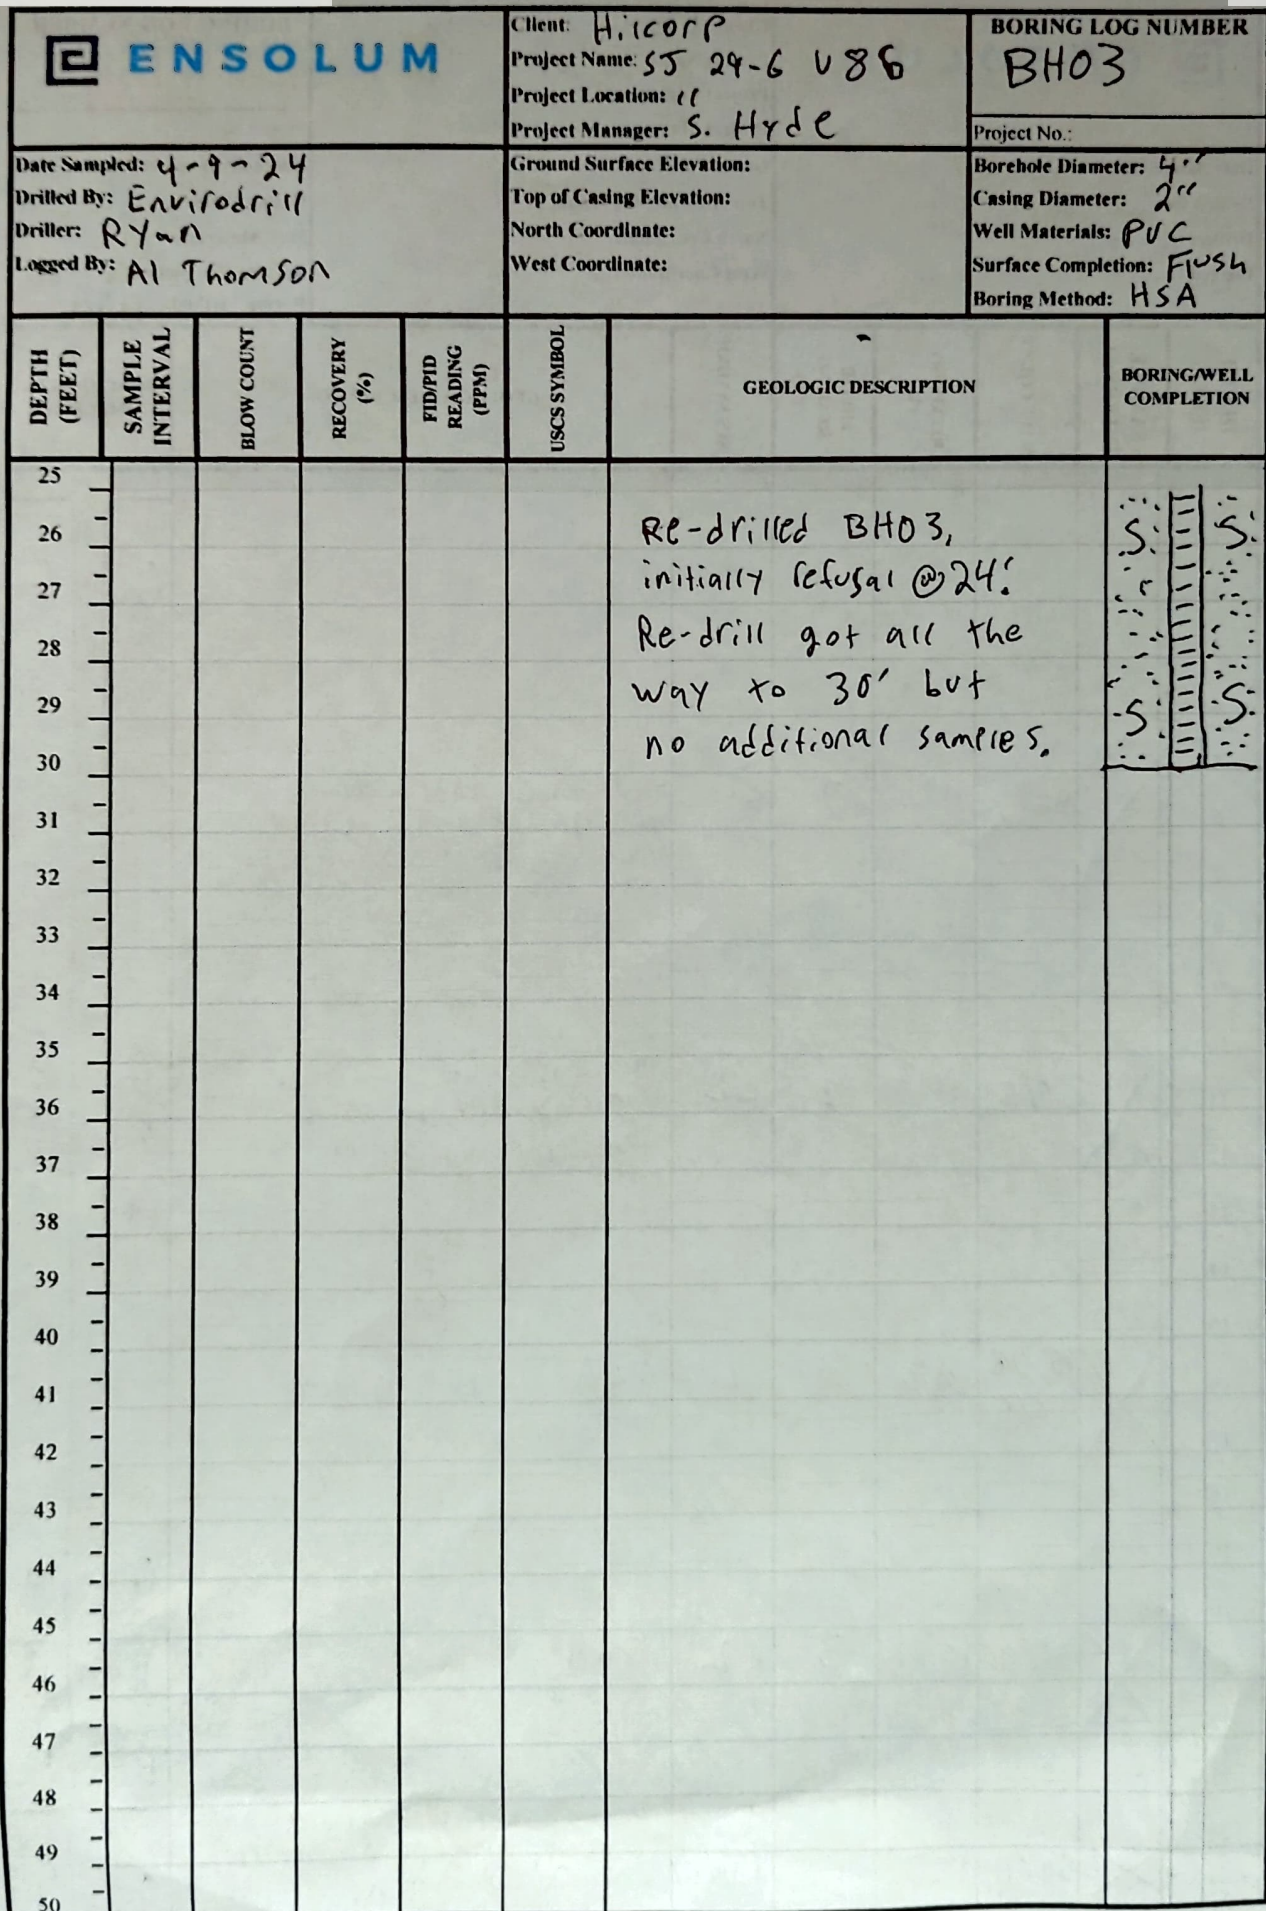 ENSOLUM
Client: Hilcorp
Project Name: SJ 29-6 U86
Project Location: "
Project Manager: S. Hyde
BORING LOG NUMBER
BH03
Project No.:
Date Sampled: 4-9-24
Drilled By: Envirodrill
Driller: Ryan
Logged By: Al Thomson
Ground Surface Elevation:
Top of Casing Elevation:
North Coordinate:
West Coordinate:
Borehole Diameter: 4"
Casing Diameter: 2"
Well Materials: PVC
Surface Completion: Flush
Boring Method: HSA
DEPTH
(FEET)
SAMPLE
INTERVAL
BLOW COUNT
RECOVERY
(%)
FID/PID
READING
(PPM)
USCS SYMBOL
GEOLOGIC DESCRIPTION
BORING/WELL
COMPLETION
25
26
27
28
29
30
31
32
33
34
35
36
37
38
39
40
41
42
43
44
45
46
47
48
49
50
Re-drilled BH03,
initially refusal @ 24'.
Re-drill got all the
way to 30' but
no additional samples.
S S
S S